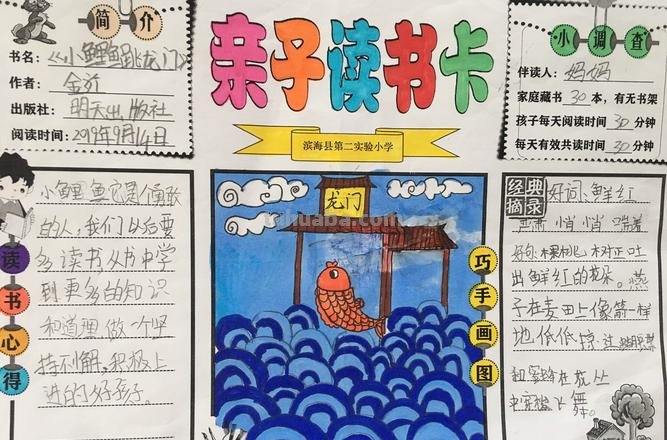 简介
书名：《小鲤鱼跳龙门》
作者：金近
出版社：明天出版社
阅读时间：2019年9月14日
亲子读书卡
滨海县第二实验小学
小调查
伴读人：妈妈
家庭藏书30本，有无书架
孩子每天阅读时间30分钟
每天有效共读时间30分钟
读书心得
小鲤鱼它是个勇敢
的人，我们以后要
多读书，从书中学
到更多的知识
和道理做一个坚
持不懈，积极上
进的好孩子。
龙门
巧手画图
经典摘录
好词：鲜红
悄悄
好句：棵棵桃树正吐
出鲜红的花朵。燕
子在麦田上像箭一样
地低低掠过
和蜜蜂在花丛
飞舞。